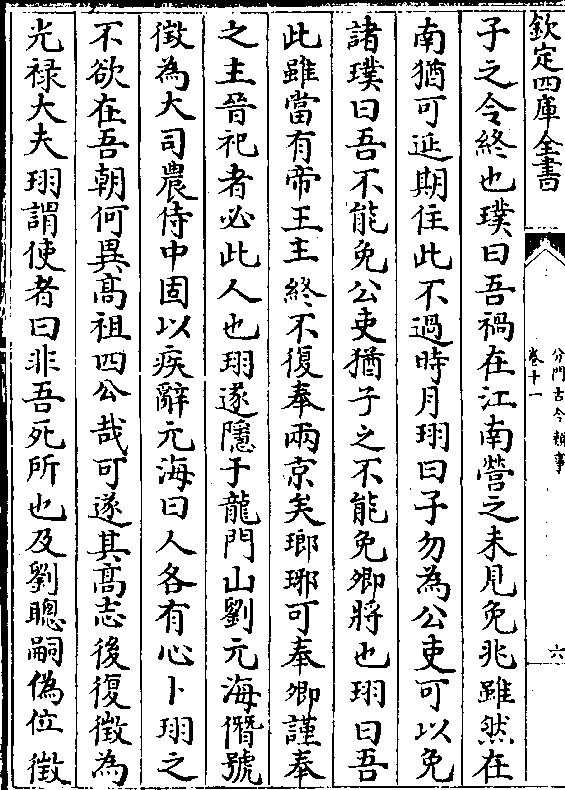 欽定四庫全書
分門古今類事
卷十一
六
子之令終也璞曰吾禍在江南營之未見免兆雖然在
南猶可延期住此不過時月珝曰子勿為公吏可以免
諸璞曰吾不能免公吏猶子之不能免卿將也珝曰吾
此雖當有帝王主終不復奉兩京矣瑯琊可奉卿謹奉
之主晉祀者必此人也珝遂隱于龍門山劉元海僭號
徵為大司農侍中固以疾辭元海曰人各有心卜珝之
不欲在吾朝何異高祖四公哉可遂其高志後復徵為
光祿大夫珝謂使者曰非吾死所也及劉聰嗣偽位徵